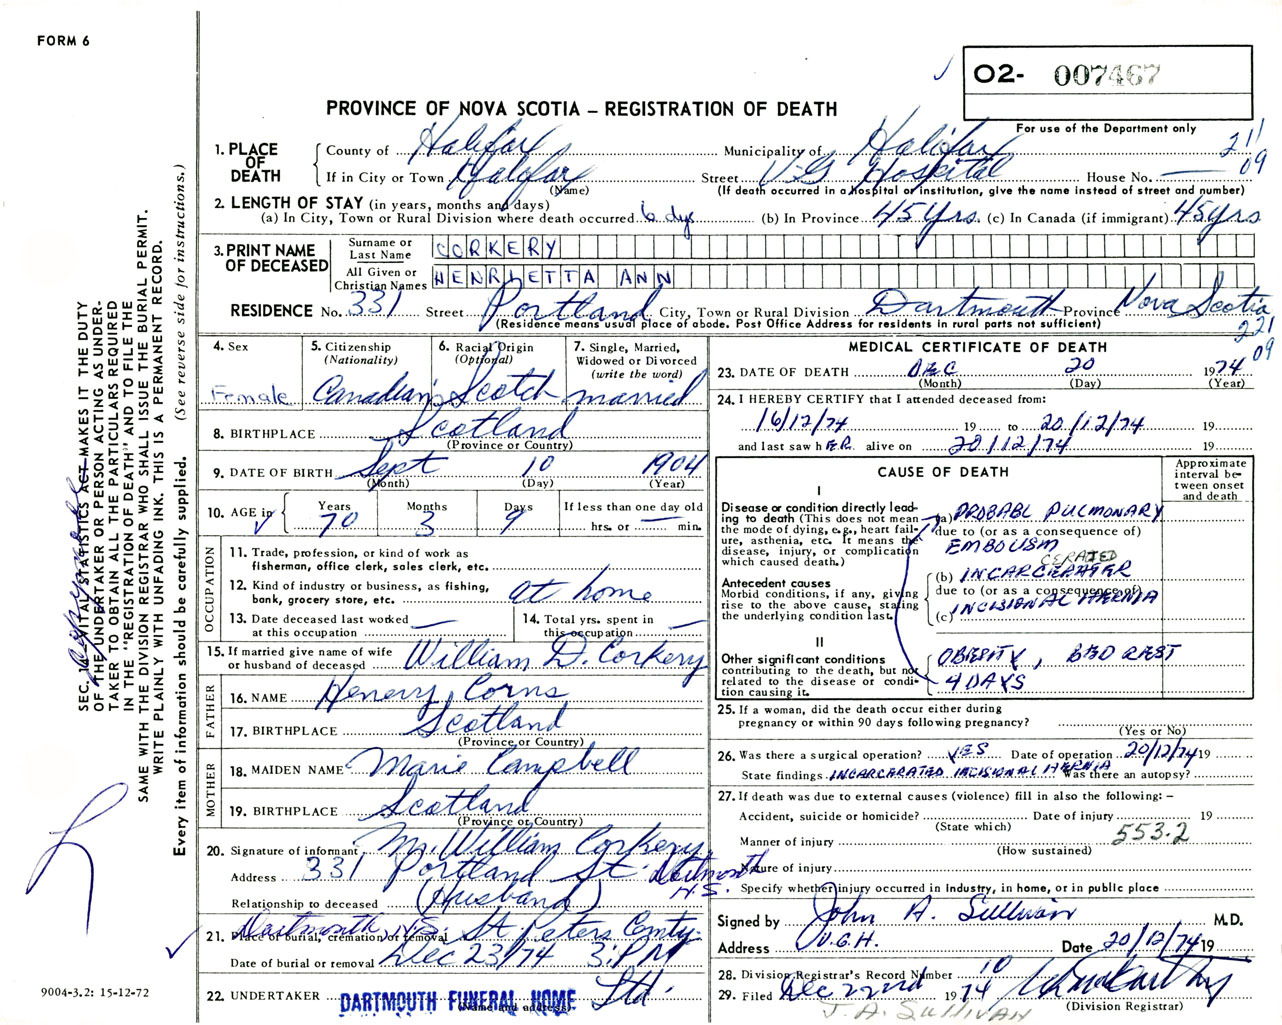 FORM 6
O2- 007467
For use of the Department only
PROVINCE OF NOVA SCOTIA – REGISTRATION OF DEATH
211
09
1. PLACE OF DEATH
County of Halifax Municipality of Halifax
If in City or Town Halifax Street V.G Hospital House No. —
(Name) (If death occurred in a hospital or institution, give the name instead of street and number)
2. LENGTH OF STAY (in years, months and days)
(a) In City, Town or Rural Division where death occurred 6 dys (b) In Province 45 Yrs. (c) In Canada (if immigrant) 45 yrs
3. PRINT NAME OF DECEASED
Surname or Last Name CORKERY
All Given or Christian Names HENRIETTA ANN
RESIDENCE No. 331 Street Portland City, Town or Rural Division Dartmouth Province Nova Scotia
(Residence means usual place of abode. Post Office Address for residents in rural parts not sufficient)
221
09
4. Sex
Female
5. Citizenship
(Nationality)
Canadian
6. Racial Origin
(Optional)
Scotch
7. Single, Married,
Widowed or Divorced
(write the word)
married
8. BIRTHPLACE Scotland
(Province or Country)
9. DATE OF BIRTH Sept 10 1904
(Month) (Day) (Year)
10. AGE in
Years Months Days If less than one day old
70 3 9 hrs. or — min.
OCCUPATION
11. Trade, profession, or kind of work as
fisherman, office clerk, sales clerk, etc.
12. Kind of industry or business, as fishing,
bank, grocery store, etc. at home
13. Date deceased last worked
at this occupation —
14. Total yrs. spent in
this occupation —
15. If married give name of wife
or husband of deceased William D. Corkery
FATHER
16. NAME Henery Corns
17. BIRTHPLACE Scotland
(Province or Country)
MOTHER
18. MAIDEN NAME Marie Campbell
19. BIRTHPLACE Scotland
(Province or Country)
20. Signature of informant Mr. William Corkery
Address 331 Portland St. Dartmouth
N.S.
Relationship to deceased (Husband)
Dartmouth N.S. St Peters Cmty.
21. Place of burial, cremation or removal
Date of burial or removal Dec 23/74 3:PM
22. UNDERTAKER DARTMOUTH FUNERAL HOME Ltd.
(Name and address)
MEDICAL CERTIFICATE OF DEATH
23. DATE OF DEATH DEC 20 1974
(Month) (Day) (Year)
24. I HEREBY CERTIFY that I attended deceased from:
16/12/74 19 to 20/12/74 19
and last saw hER alive on 20/12/74 19
CAUSE OF DEATH
Approximate
interval be-
tween onset
and death
I
Disease or condition directly lead-
ing to death (This does not mean
the mode of dying, e.g., heart fail-
ure, asthenia, etc. It means the
disease, injury, or complication
which caused death.)
(a) PROBABL PULMONARY
due to (or as a consequence of)
EMBOLISM
CERATED
Antecedent causes
Morbid conditions, if any, giving
rise to the above cause, stating
the underlying condition last.
(b) INCARCERATER
due to (or as a consequence of)
(c) INCISIONAL HERNIA
II
Other significant conditions
contributing to the death, but not
related to the disease or condi-
tion causing it.
OBESITY, BED REST
4 DAYS
25. If a woman, did the death occur either during
pregnancy or within 90 days following pregnancy?
(Yes or No)
26. Was there a surgical operation? YES Date of operation 20/12/74 19
State findings INCARCERATED INCISIONAL HERNIA Was there an autopsy?
27. If death was due to external causes (violence) fill in also the following: –
Accident, suicide or homicide? Date of injury 19
(State which)
553.2
Manner of injury
(How sustained)
Nature of injury
Specify whether injury occurred in industry, in home, or in public place
Signed by John A. Sullivan M.D.
Address V.G.H. Date 20/12/74 19
28. Division Registrar's Record Number 10
29. Filed Dec 22nd 1974
(Division Registrar)
J. A. SULLIVAN
SEC. 14 – VITAL STATISTICS ACT MAKES IT THE DUTY
OF THE UNDERTAKER OR PERSON ACTING AS UNDER-
TAKER TO OBTAIN ALL THE PARTICULARS REQUIRED
IN THE "REGISTRATION OF DEATH" AND TO FILE THE
SAME WITH THE DIVISION REGISTRAR WHO SHALL ISSUE THE BURIAL PERMIT.
WRITE PLAINLY WITH UNFADING INK. THIS IS A PERMANENT RECORD.
Every item of information should be carefully supplied. (See reverse side for instructions.)
9004-3.2: 15-12-72